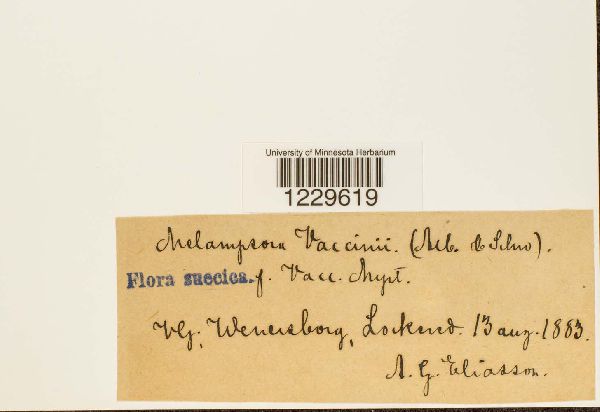 University of Minnesota Herbarium
1229619
Melampsora Vaccinii. (Alb. & Schw).
Flora suecica. f. Vacc. Myrt.
Vg, Wenersborg, Lockerud. 13 aug. 1883.
A. G. Eliasson.